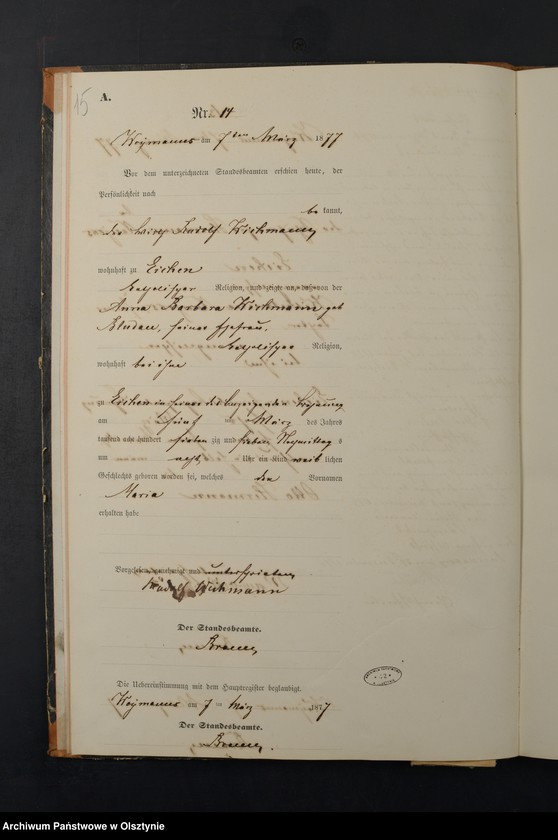 15
A.
Nr. 14
am 7ten März 1877
Vor dem unterzeichneten Standesbeamten erschien heute, der
Persönlichkeit nach
be kannt,
Rudolf Wichmann
wohnhaft zu Eichen
katholischer Religion, und zeigte an, daß von der
Anna Barbara Wichmann geb
seiner Ehefrau,
katholischer Religion,
wohnhaft bei ihm
zu Eichen in seiner des Anzeigenden Wohnung
am März des Jahres
tausend acht hundert sieben zig und sieben Nachmittag s
um acht Uhr ein Kind weib lichen
Geschlechts geboren worden sei, welches den Vornamen
Maria
erhalten habe
Vorgelesen, genehmigt und unterschrieben
Rudolf Wichmann
Der Standesbeamte.
Die Uebereinstimmung mit dem Hauptregister beglaubigt.
am 7 ten März 1877
Der Standesbeamte.
Archiwum Państwowe w Olsztynie